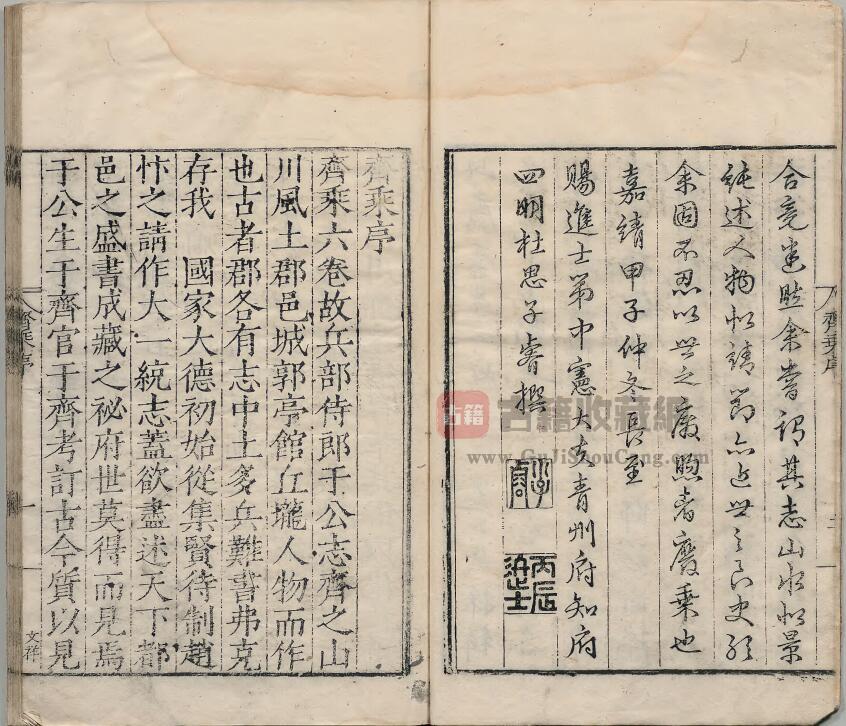 合竟迷然余嘗謂其志山水如景
純述人物如靖節亦近世之良史
余固不忍以世之廢照者廢乘也
嘉靖甲子仲冬長至
賜進士第中憲大夫青州府知府
四明杜思子睿撰
丙辰進士
齊乘序
齊乘序
齊乘六卷故兵部侍郎于公志齊之山
川風土郡邑城郭亭館丘壠人物而作
也古者郡各有志中土多兵難書弗克
存我 國家大德初始從集賢待制趙
忭之請作大一統志蓋欲盡述天下都
邑之盛書成藏之祕府世莫得而見焉
于公生于齊官于齊考訂古今質以見
齊乘序
一
文祥
古籍
古籍收藏網
www.GuJiShouCang.com